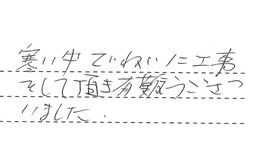 寒い中ていねいに工事
そして頂き有難うござつ
いました.